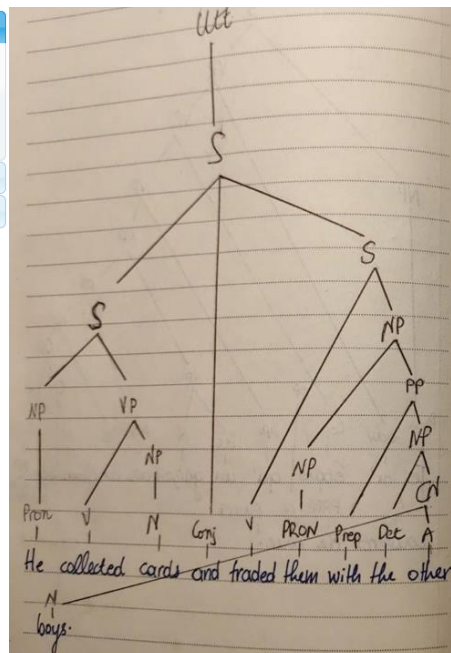 Utt
S
S
S
NP
NP VP PP
NP NP
NP CN
Pron V N Conj V PRON Prep Det A
He collected cards and traded them with the other
N
boys.